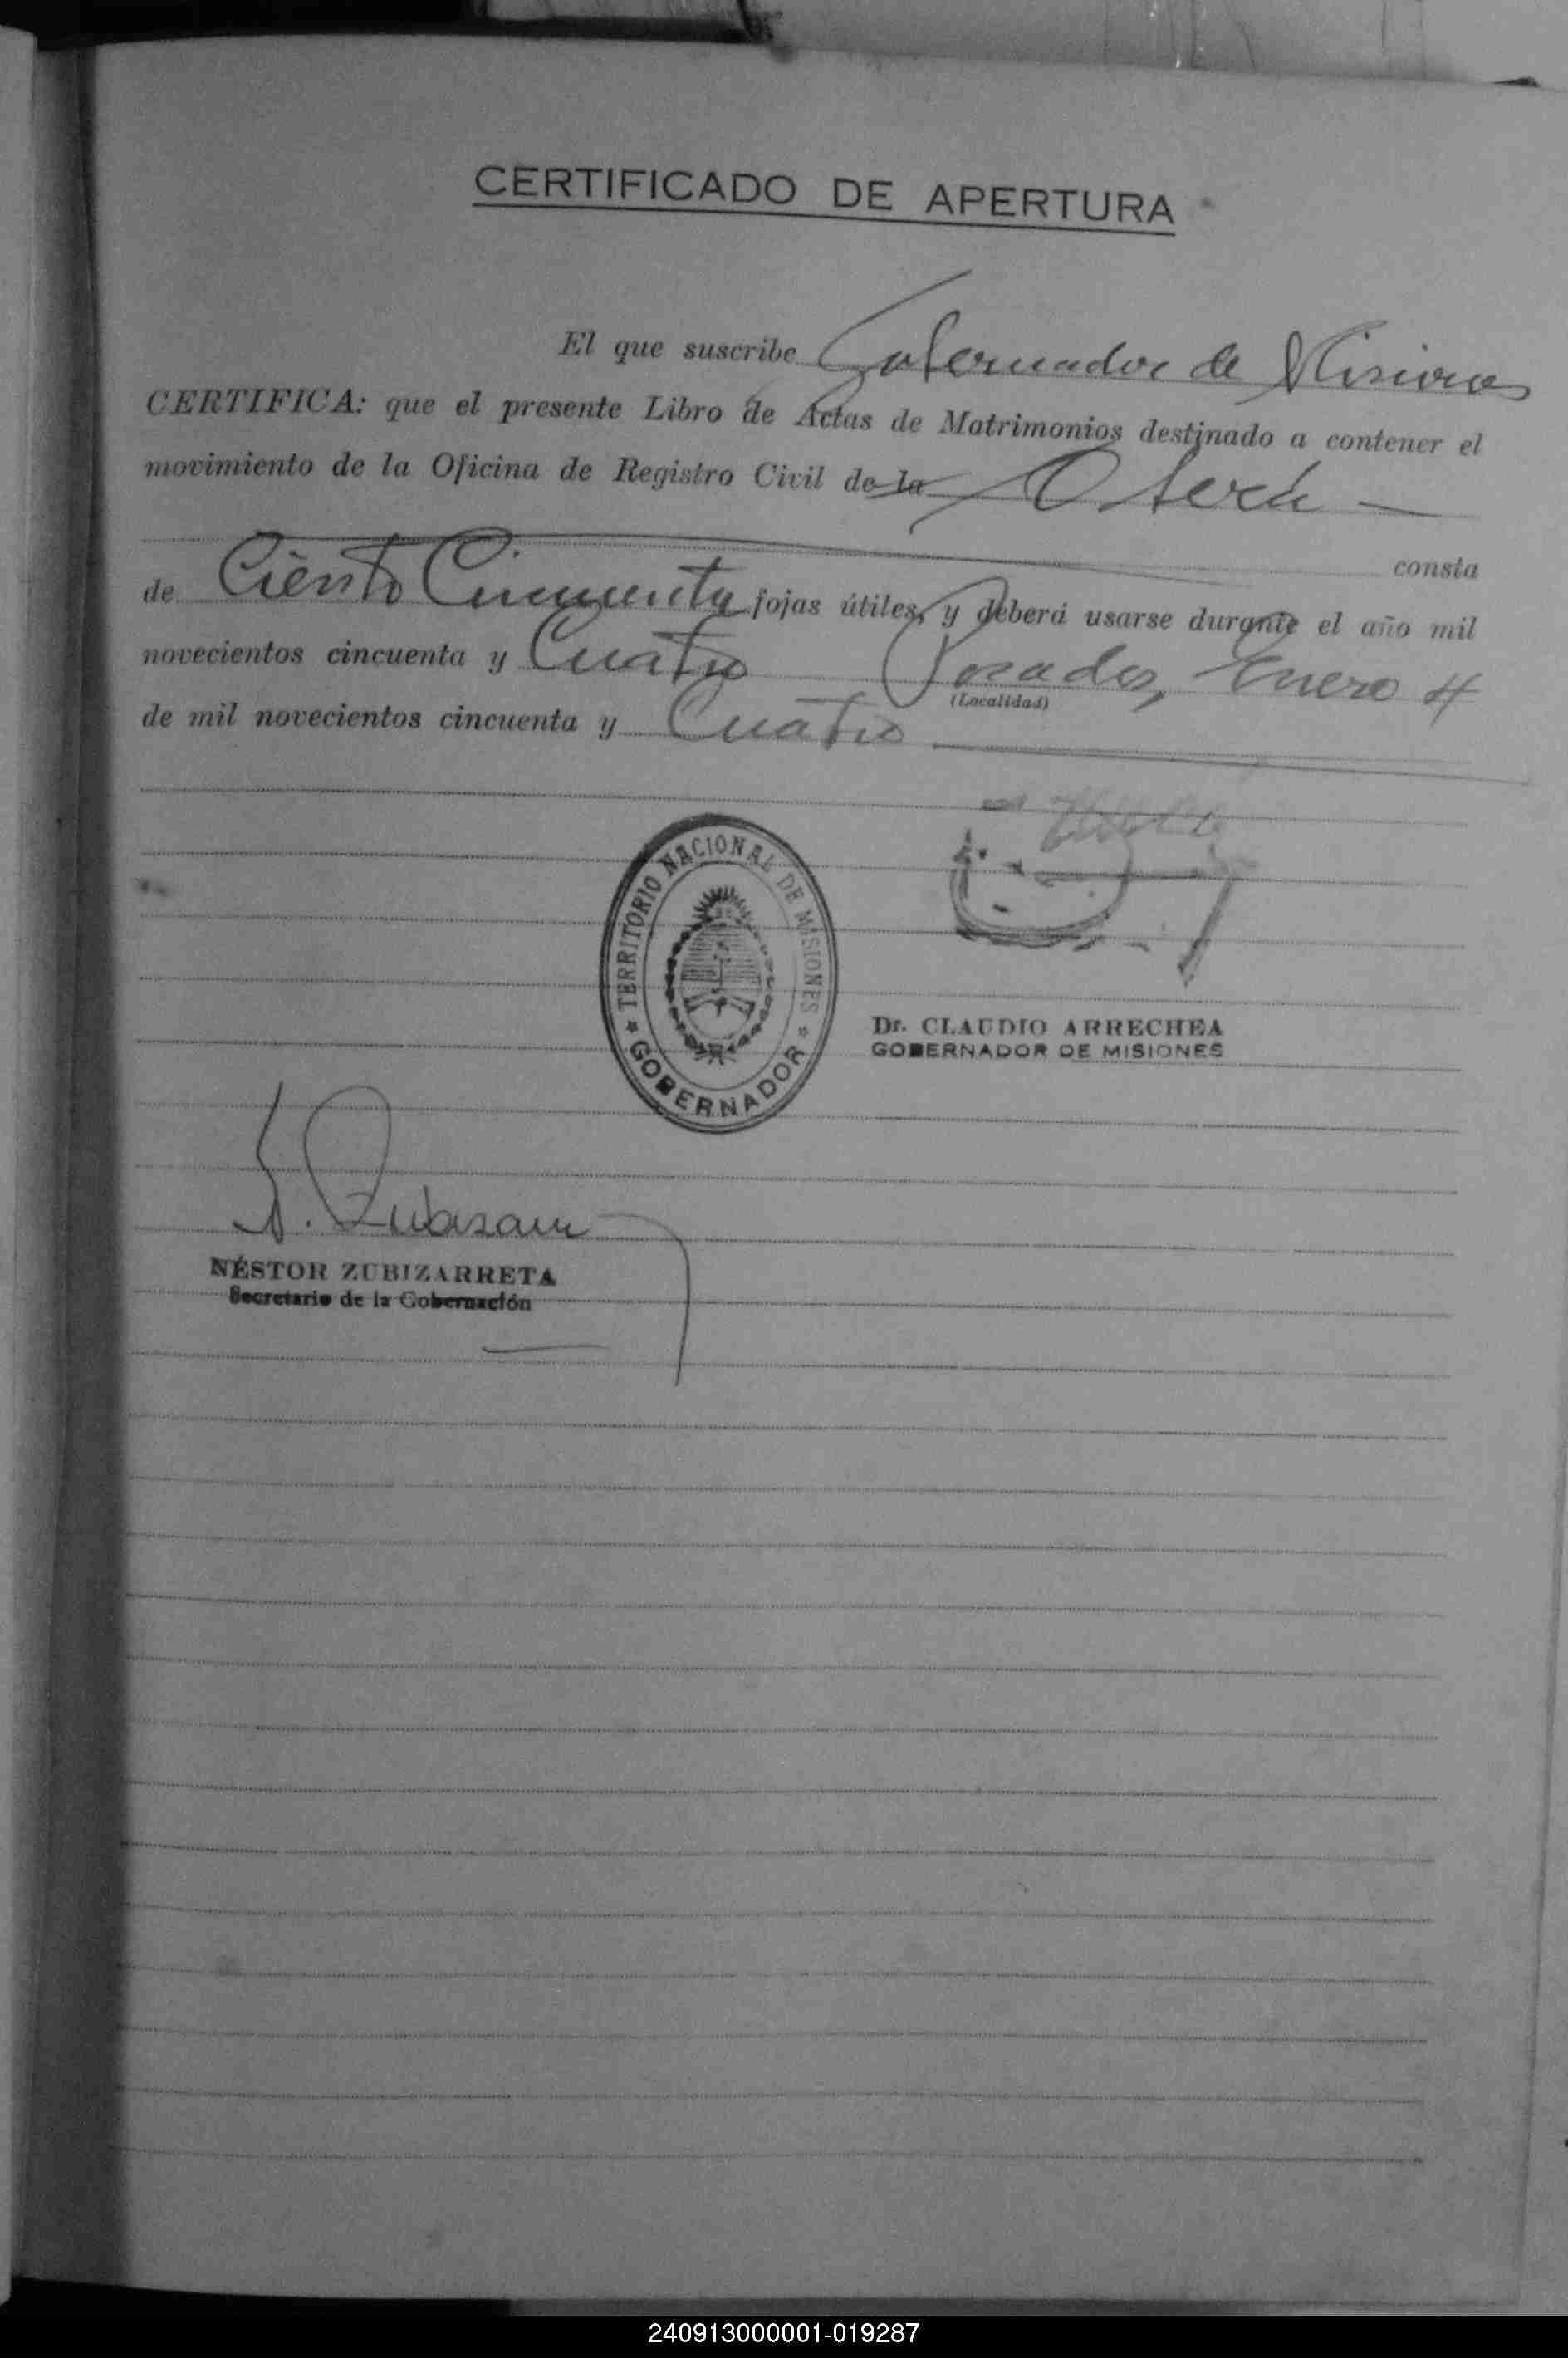 CERTIFICADO DE APERTURA
El que suscribe Gobernador de Misiones
CERTIFICA: que el presente Libro de Actas de Matrimonios destinado a contener el
movimiento de la Oficina de Registro Civil de la Oberá
consta
de Ciento Cincuenta fojas útiles, y deberá usarse durante el año mil
novecientos cincuenta y Cuatro Posadas, Enero 4
(Localidad)
de mil novecientos cincuenta y Cuatro
TERRITORIO NACIONAL DE MISIONES
GOBERNADOR
Dr. CLAUDIO ARRECHEA
GOBERNADOR DE MISIONES
NÉSTOR ZUBIZARRETA
Secretario de la Gobernación
240913000001-019287